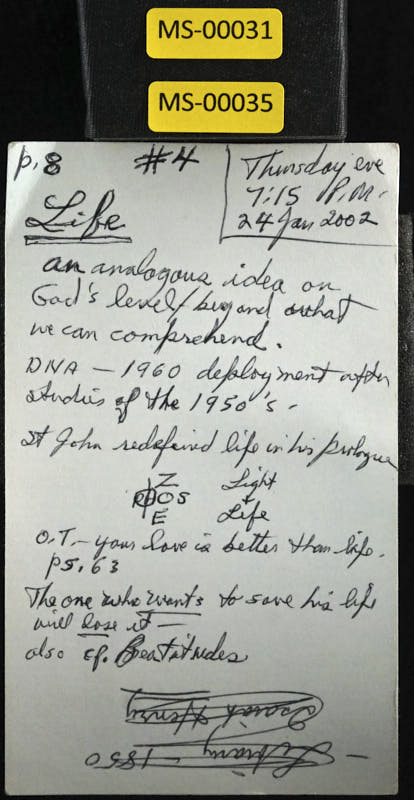 MS-00031
MS-00035
p.8 #4 Thursday eve
7:15 P.M.
24 Jan 2002
Life
an analogous idea on
God's level/beyond what
we can comprehend.
DNA — 1960 deployment after
studies of the 1950's -
St John redefined life in his prologue
Z Light
ΦOS +
E Life
O.T. - your love is better than life.
PS. 63
The one who wants to save his life
will lose it —
also cf. Beatitudes
— 1850